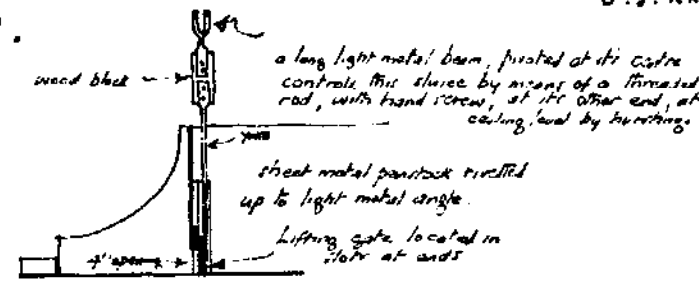 wood block
a long light metal beam, pivoted at its centre
controls this sluice by means of a threaded
rod, with hand screw, at its other end, at
ceiling level by
sheet metal penstock rivetted
up to light metal angle.
Lifting gate located in
slots at ends
4" open